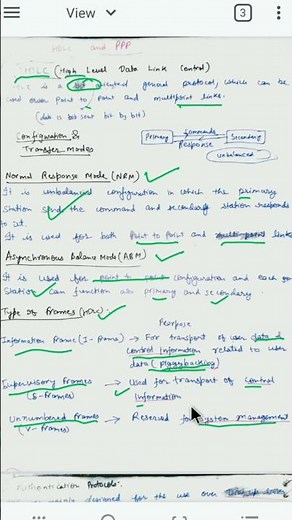 View
3
HDLC and PPP
HDLC (High Level Data Link Control)
It is a bit oriented general protocol, which can be
used over Point to Point and multipoint links.
(data is bit sent bit by bit)
Configuration &
Transfer Modes
Primary Commands Secondary
Response
Unbalanced
Normal Response Mode (NRM)
It is Unbalanced configuration in which the primary
Station send the command and secondary station responds
to it.
It is used for both Point to Point and multipoint links
Asynchronous balance Mode (ABM)
It is used for point to point configuration and each
Station can function as primary and secondary.
Type of Frames (HDLC)
Purpose
Information Frame (I-Frame) → For transport of user data &
control information related to user
data (piggybacking)
Supervisory Frames → Used for transport of control
(S-Frames) information
Unnumbered Frames → Reserved for system management
(V-Frames)
Authentication Protocols:
designed for the use over